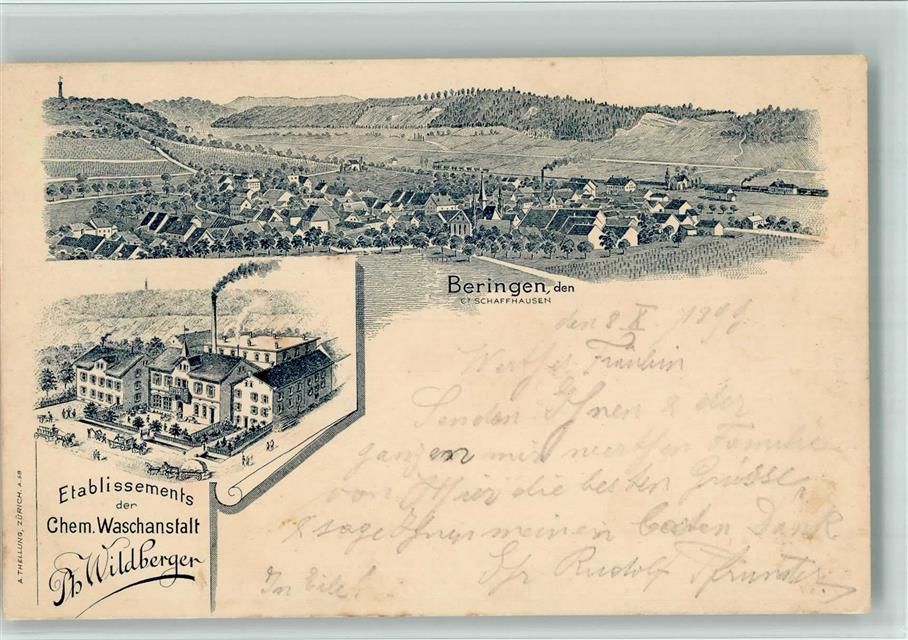 Beringen, den
Ct. SCHAFFHAUSEN
den 8 X 1899
Wertes Fräulein
Senden Ihnen & der
ganzen mir werthen Familie
von Hier die besten Grüsse,
& sage Ihnen meinen besten Dank
Ihr Rudolf
In Eile!
Etablissements
der
Chem. Waschanstalt
Ph. Wildberger
A. THELLUNG, ZÜRICH. A. 59